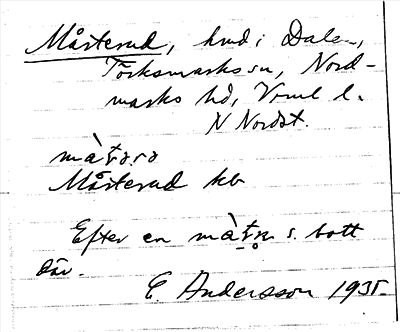 Mårterud, hmd i Dalen,
Töcksmarks sn, Nord-
marks hd, Vrml l.
N Nordst.
màt̄ərə
Mårterud kb
Efter en màt̄n̥ s. bott
där.
E. Andersson 1935.